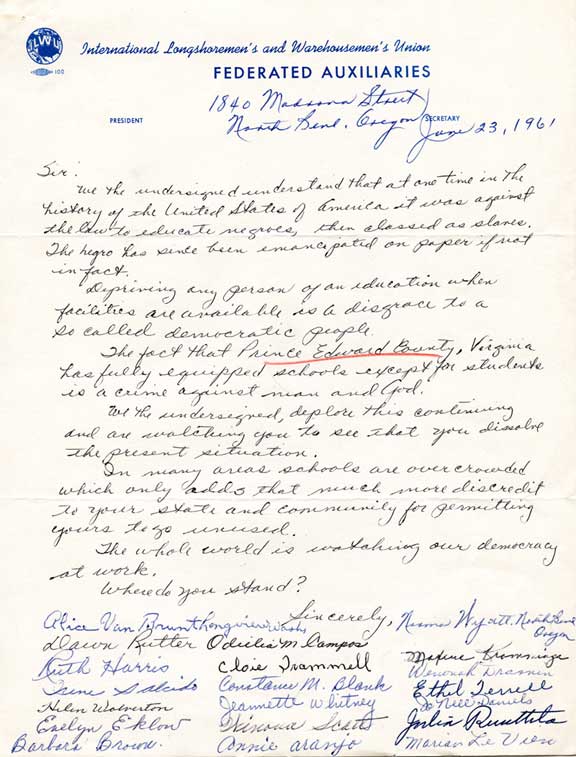 ILWU
100
International Longshoremen's and Warehousemen's Union
FEDERATED AUXILIARIES
PRESIDENT
SECRETARY
1840 Madrona Street
North Bend, Oregon June 23, 1961
Sir:
We the undersigned understand that at one time in the
history of the United States of America it was against
the law to educate negroes, then classed as slaves.
The negro has since been emancipated on paper if not
in fact.
Depriving any person of an education when
facilities are available is a disgrace to a
so called democratic people.
The fact that Prince Edward County, Virginia
has fully equipped schools except for students
is a crime against man and God.
We the undersigned, deplore this continuing
and are watching you to see that you dissolve
the present situation.
In many areas schools are overcrowded
which only adds that much more discredit
to your state and community for permitting
yours to go unused.
The whole world is watching our democracy
at work.
Where do you stand?
Sincerely,
Alice Van Brunt Longview Wash. Norma Wyatt. North Bend
Oregon
Dawn Rutter Odielia M. Campos
Ruth Harris Cloie Trammell Maxine
Irene Salcido Constance M. Blank Wenonah Drasnin
Helen Wolverton Jeannette Whitney Ethel Terrell
Evelyn Eklow Winona Scott Nell Daniels
Barbara Brown. Annie Aranjo Julia Ruuttila
Marian Le Vien